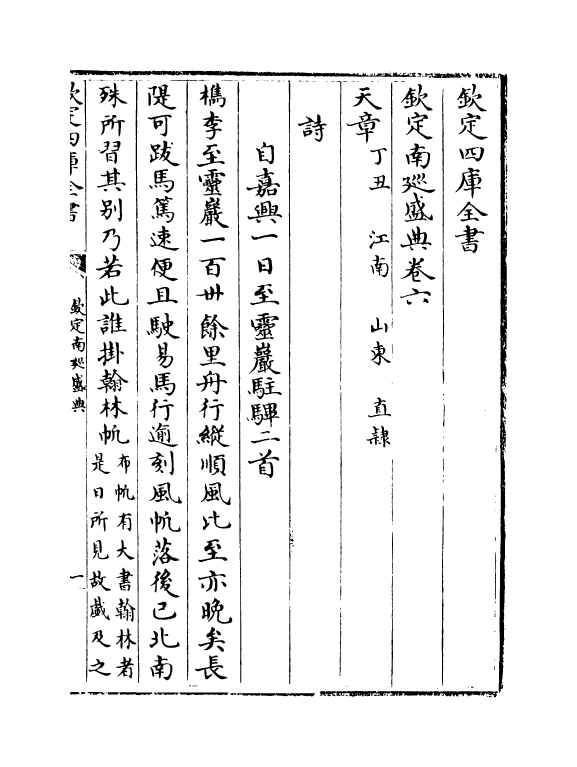 欽定四庫全書
欽定南廵盛典卷六
天章丁丑 江南 山東 直隷
詩
自嘉興一日至靈巖駐驆二首
檇李至靈巖一百丗餘里舟行縱順風比至亦晚矣長
隄可跋馬篤速便且駛易馬行逾刻風帆落後已北南
殊所習其别乃若此誰掛翰林帆布帆有大書翰林者
是日所見故戱及之
欽定四庫全書
欽定南廵盛典
一